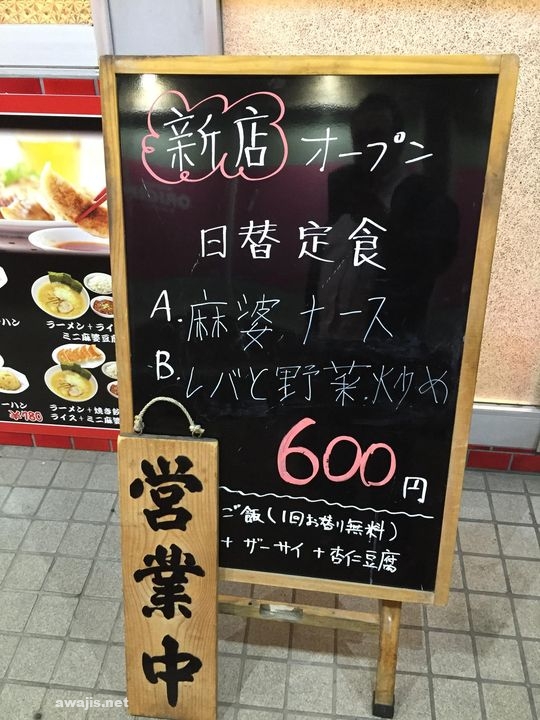 新店 オープン
日替定食
A. 麻婆ナース
B. レバと野菜炒め
600円
ご飯(1回お替り無料)
+ ザーサイ + 杏仁豆腐
営業中
ラーメン+ライ
ミニ麻婆豆腐
ラーメン+焼き餃
ライス+ミニ麻婆
ーハン
ーハン
780
awajis.net